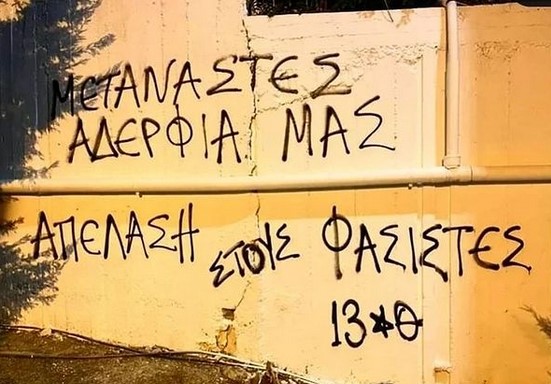 ΜΕΤΑΝΑΣΤΕΣ
ΑΔΕΡΦΙΑ ΜΑΣ
ΑΠΕΛΑΣΗ ΣΤΟΥΣ ΦΑΣΙΣΤΕΣ
13★Θ